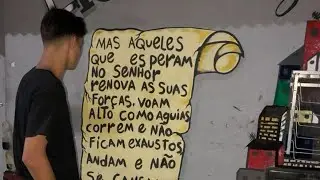 MAS AQUELES
QUE ESPERAM
NO SENHOR
RENOVA AS SUAS
FORÇAS, VOAM
ALTO COMO AGUIAS
CORREM E NÃO
FICAM EXAUSTOS
ANDAM E NÃO
SE